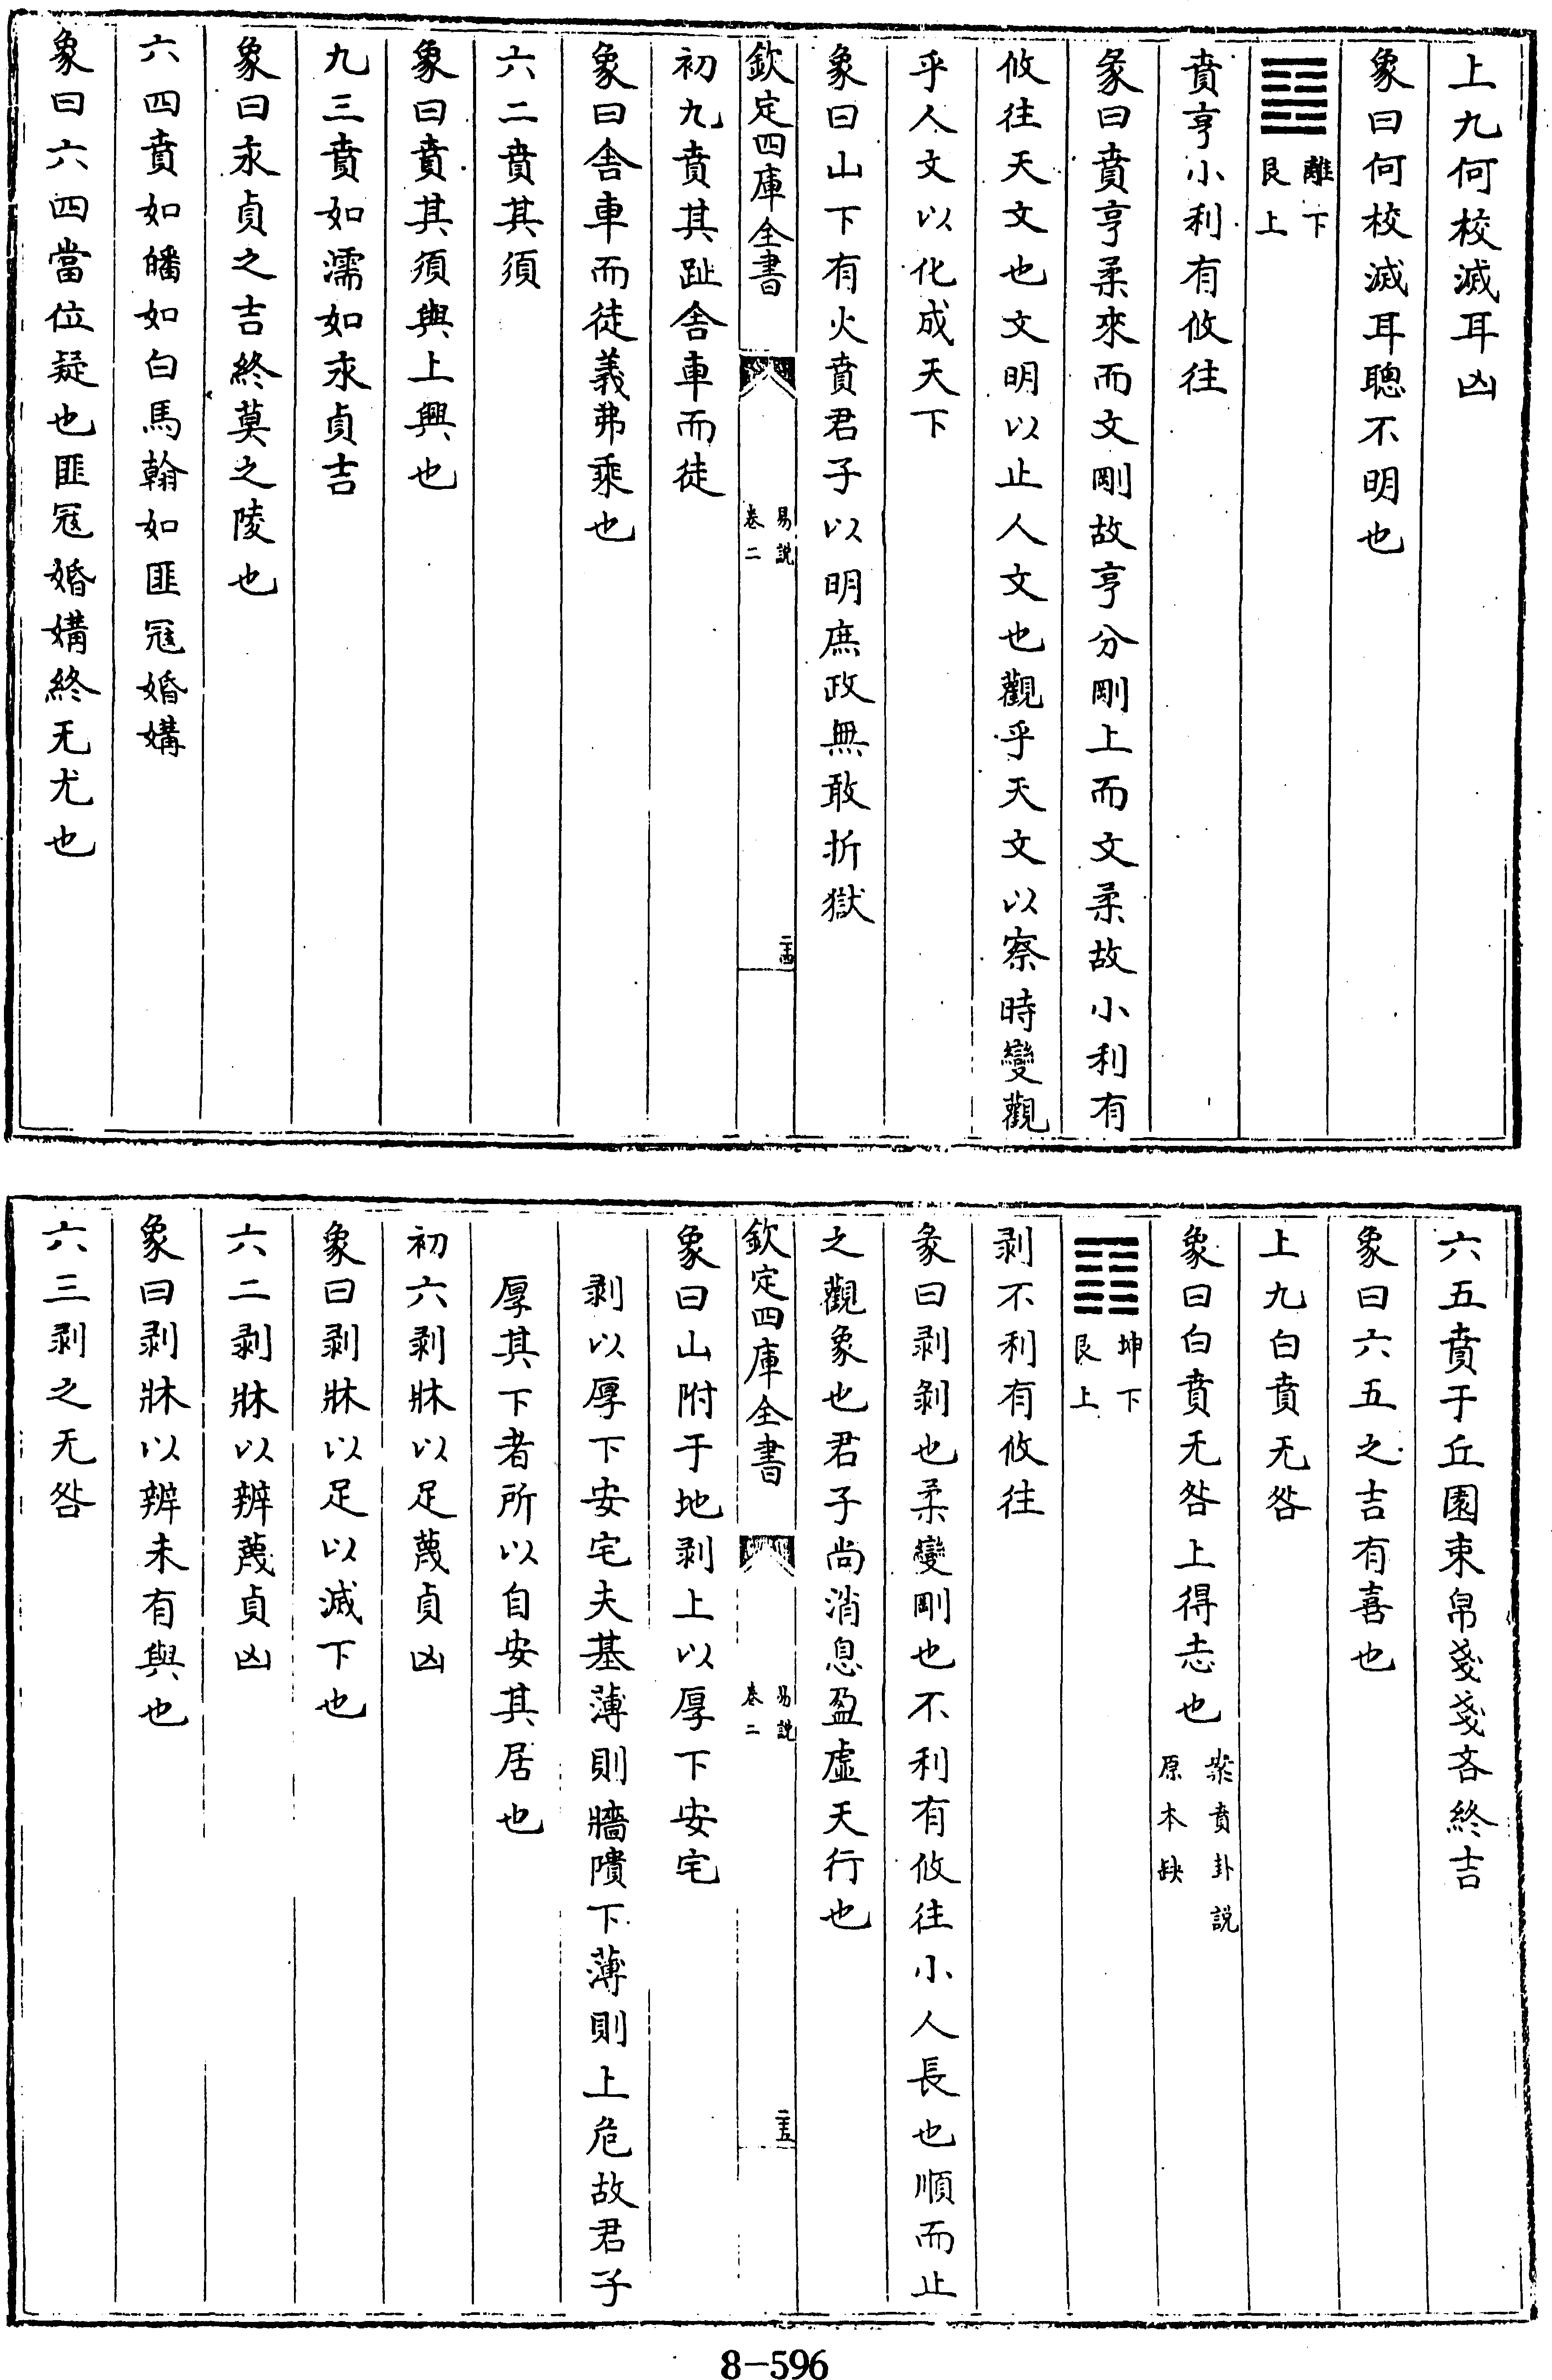 上九何校滅耳凶
象曰何校滅耳聰不明也
䷕離下艮上
賁亨小利有攸往
彖曰賁亨柔來而文剛故亨分剛上而文柔故小利有
攸往天文也文明以止人文也觀乎天文以察時變觀
乎人文以化成天下
象曰山下有火賁君子以明庶政無敢折獄
欽定四庫全書 易說卷二 二十四
初九賁其趾舍車而徒
象曰舍車而徒義弗乘也
六二賁其須
象曰賁其須與上興也
九三賁如濡如永貞吉
象曰永貞之吉終莫之陵也
六四賁如皤如白馬翰如匪冦婚媾
象曰六四當位疑也匪冦婚媾終无尤也
六五賁于丘園束帛戔戔吝終吉
象曰六五之吉有喜也
上九白賁无咎
象曰白賁无咎上得志也案賁卦説原本缺
䷖坤下艮上
剥不利有攸往
彖曰剥剝也柔變剛也不利有攸往小人長也順而止
之觀象也君子尚消息盈虛天行也
欽定四庫全書 易說卷二 二十五
象曰山附于地剥上以厚下安宅
剥以厚下安宅夫基薄則牆隤下薄則上危故君子
厚其下者所以自安其居也
初六剥牀以足蔑貞凶
象曰剥牀以足以滅下也
六二剥牀以辨蔑貞凶
象曰剥牀以辨未有與也
六三剥之无咎
8-596